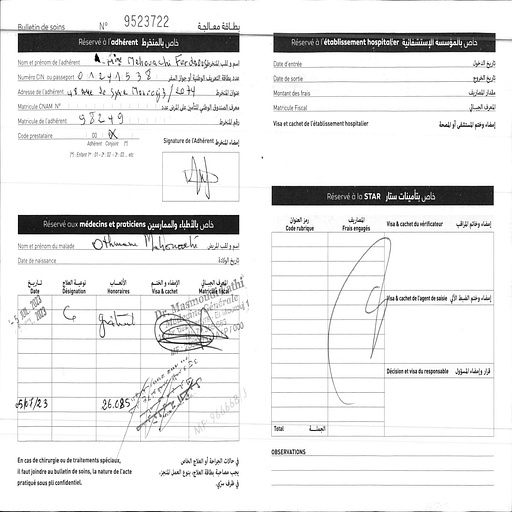 Bulletin de soins N° 9523722 بطاقة معالجة
Réservé à l'adhérent خاص بالمنخرط
Nom et prénom de l'adhérent Mme Mahouachi Ferdaous اسم و لقب المنخرط
Numéro CIN ou passeport 01241538 رقم بطاقة التعريف الوطنية أو جواز السفر
Adresse de l'adhérent عنوان المنخرط
Matricule CNAM N° معرف الصندوق الوطني للتأمين على المرض عدد
Matricule de l'adhérent 98249 رقم المنخرط
Code prestataire: 00
Adhérent Conjoint (*)
(*) : Enfant 1er : 01 - 2e : 02 - 3e : 03 ... etc
Signature de l'Adhérent إمضاء المنخرط
Réservé aux médecins et praticiens خاص بالأطباء والممارسين
Nom et prénom du malade Othmane Mahouachi اسم و لقب المريض
Date de naissance تاريخ الولادة
التاريخ نوعية العلاج الأتعاب الإمضاء و الختم المعرف الجبائي
Date Désignation Honoraires Visa & cachet Matricule fiscal
C gratuit
Dr. Masmoudi Fathi
Médecine Générale
05/07/23 26.085
En cas de chirurgie ou de traitements spéciaux,
il faut joindre au bulletin de soins, la nature de l'acte
pratiqué sous pli confidentiel.
في حالات الجراحة أو العلاج الخاص
يجب مصاحبة بطاقة العلاج، بنوع العمل المنجز،
في ظرف سري.
Réservé à l'établissement hospitalier خاص بالمؤسسة الإستشفائية
Date d'entrée تاريخ الدخول
Date de sortie تاريخ الخروج
Montant des frais مقدار المصاريف
Matricule Fiscal المعرف الجبائي
Visa et cachet de l'établissement hospitalier إمضاء وختم المستشفى أو المصحة
Réservé à la STAR خاص بتأمينات ستار
رمز العنوان المصاريف
Code rubrique Frais engagés
Visa & cachet du vérificateur إمضاء وخاتم المراقب
Visa & cachet de l'agent de saisie
Décision et visa du responsable قرار وإمضاء المسؤول
Total الجملة
OBSERVATIONS